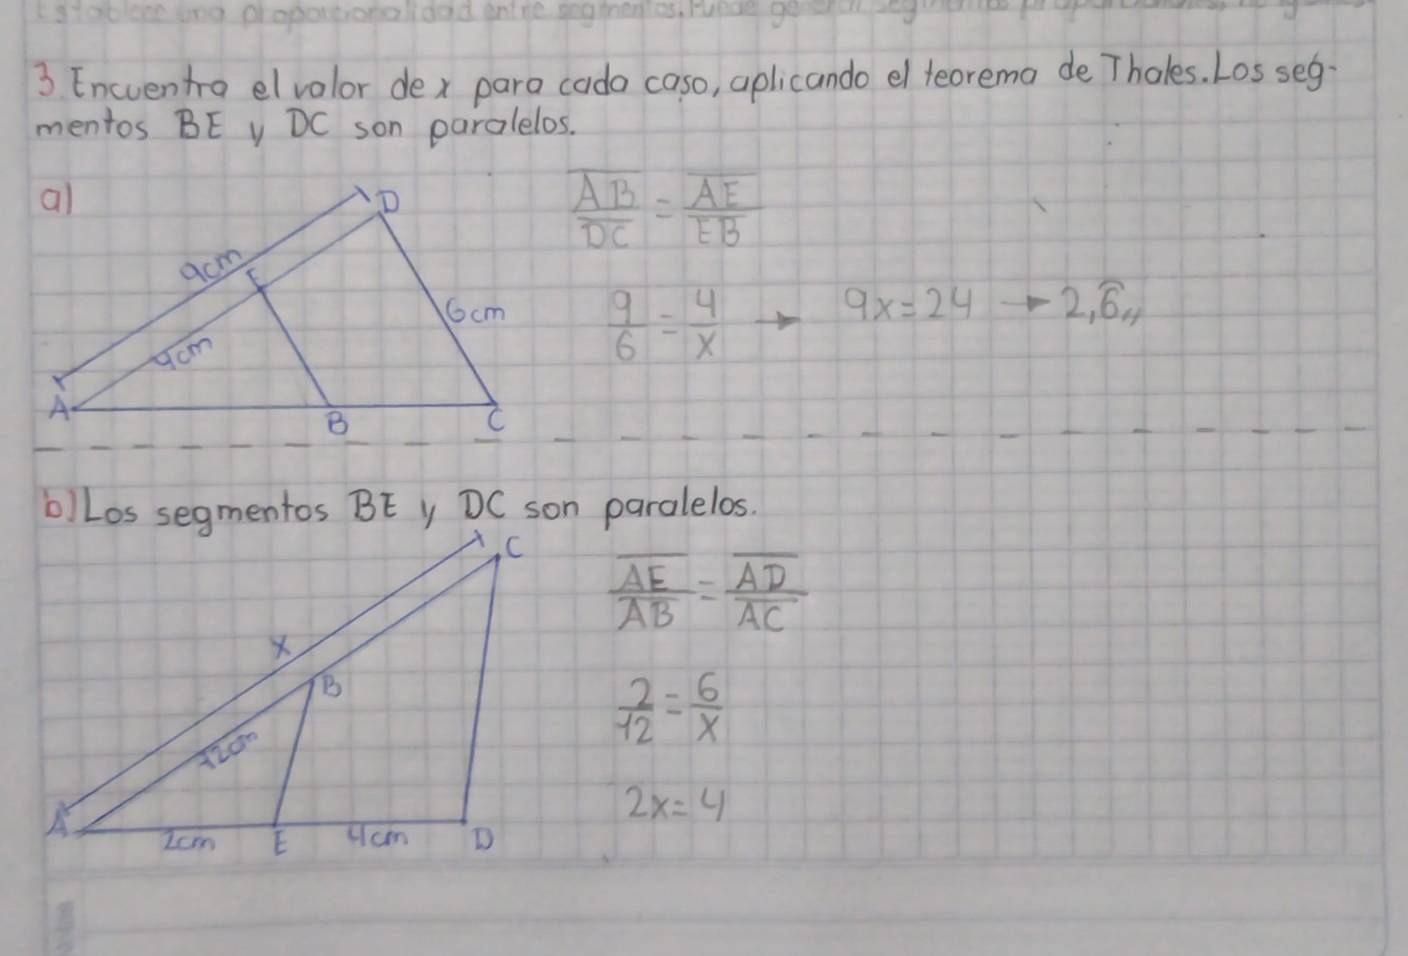 proporcionalidad entre segmentos. Puede
3. Encuentra el valor de x para cada caso, aplicando el teorema de Thales. Los seg-
mentos BE y DC son paralelos.
a)
D
9cm
E
6cm
4cm
A
B
C
AB/DC = AE/EB
9/6 = 4/x → 9x = 24 → 2,6̅,,
b) Los segmentos BE y DC son paralelos.
C
x
B
12cm
A
2cm E 4cm D
AE/AB = AD/AC
2/12 = 6/x
2x = 4